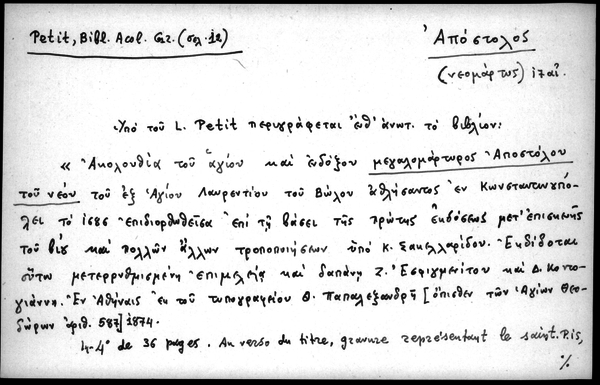 Petit, Bibl. Acol. Gr. (σελ. 12)
Ἀπόστολος
(νεομάρτυς)
Ὑπὸ τοῦ L. Petit περιγράφεται ἐνθ' ἀνωτ. τὸ βιβλίον:
« Ἀκολουθία τοῦ ἁγίου καὶ ἐνδόξου μεγαλομάρτυρος Ἀποστόλου
τοῦ νέου τοῦ ἐξ Ἁγίου Λαυρεντίου τοῦ Βώλου ἀθλήσαντος ἐν Κωνσταντινουπό-
λει τὸ 1686 ἐπιδιορθωθεῖσα ἐπὶ τῇ βάσει τῆς πρώτης ἐκδόσεως μετ' ἐπισκευῆς
τοῦ βίου καὶ πολλῶν ἄλλων τροποποιήσεων ὑπὸ Κ. Σακελλαρίδου. Ἐκδίδοται
οὕτω μετερρυθμισμένη ἐπιμελείᾳ καὶ δαπάνῃ Ζ. Ἐσφιγμενίτου καὶ Δ. Κοντο-
γιάννη. Ἐν Ἀθήναις ἐκ τοῦ τυπογραφείου Θ. Παπαλεξανδρῆ [ὄπισθεν τῶν Ἁγίων Θεο-
δώρων ἀριθ. 587] 1874.
4-4° de 36 pages. Au verso du titre, gravure représentant le saint. P. is,
%